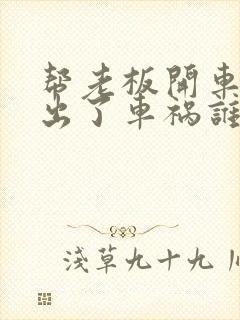 帮老板開車
出了車禍誰
淺草九十九